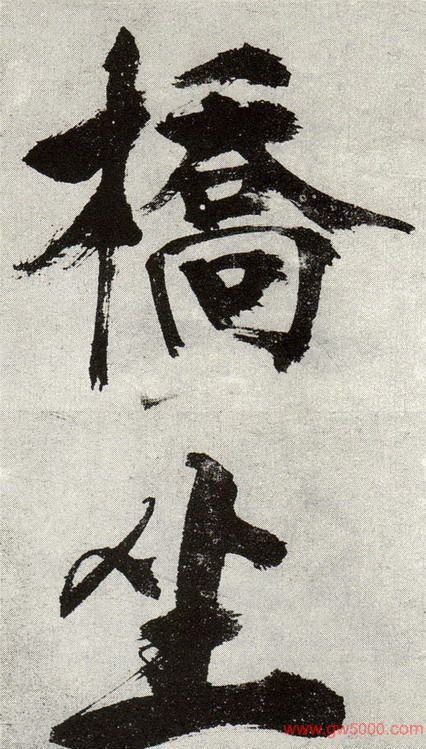 橋
坐
www.gw5000.com